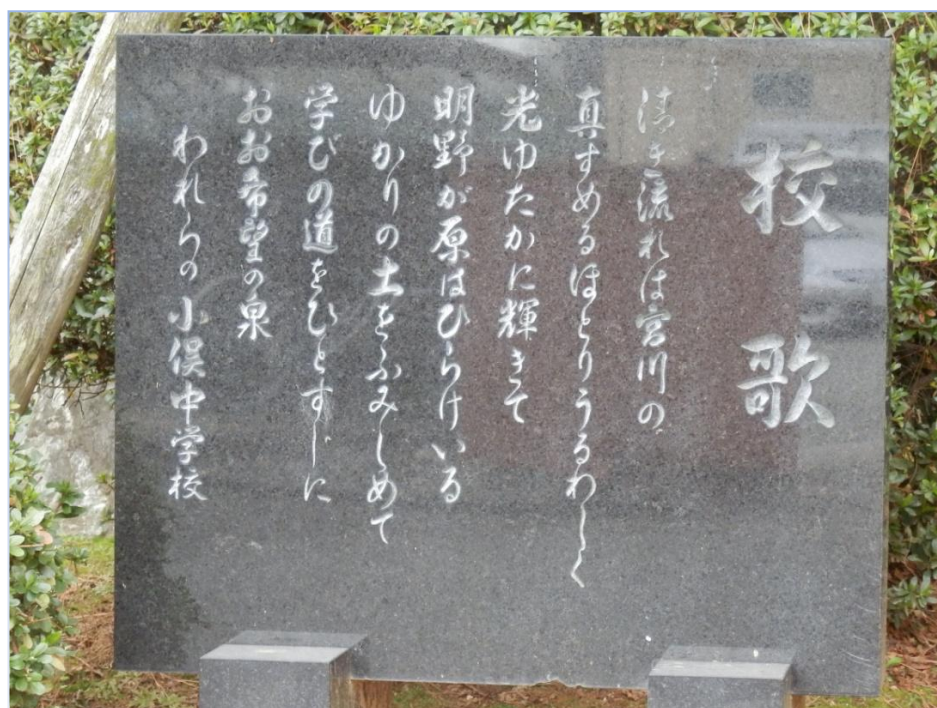 校歌
清き流れは宮川の
真すめるほとりうるわしく
光ゆたかに輝きて
明野が原はひらけいる
ゆかりの土をふみしめて
学びの道をひとすじに
おお希望の泉
われらの小俣中学校